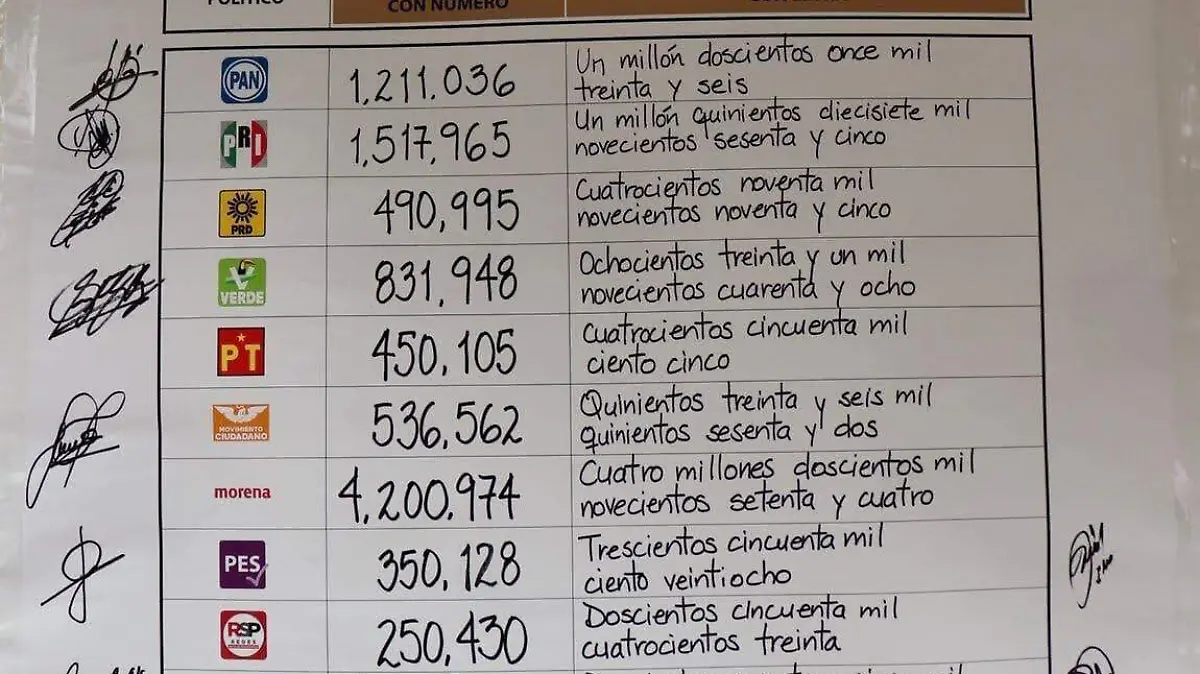 CON NÚMERO
PAN
1,211,036
Un millón doscientos once mil
treinta y seis
PRI
1,517,965
Un millón quinientos diecisiete mil
novecientos sesenta y cinco
PRD
490,995
Cuatrocientos noventa mil
novecientos noventa y cinco
VERDE
831,948
Ochocientos treinta y un mil
novecientos cuarenta y ocho
PT
450,105
Cuatrocientos cincuenta mil
ciento cinco
MOVIMIENTO
CIUDADANO
536,562
Quinientos treinta y seis mil
quinientos sesenta y dos
morena
4,200,974
Cuatro millones doscientos mil
novecientos setenta y cuatro
PES
350,128
Trescientos cincuenta mil
ciento veintiocho
RSP
REDES
250,430
Doscientos cincuenta mil
cuatrocientos treinta